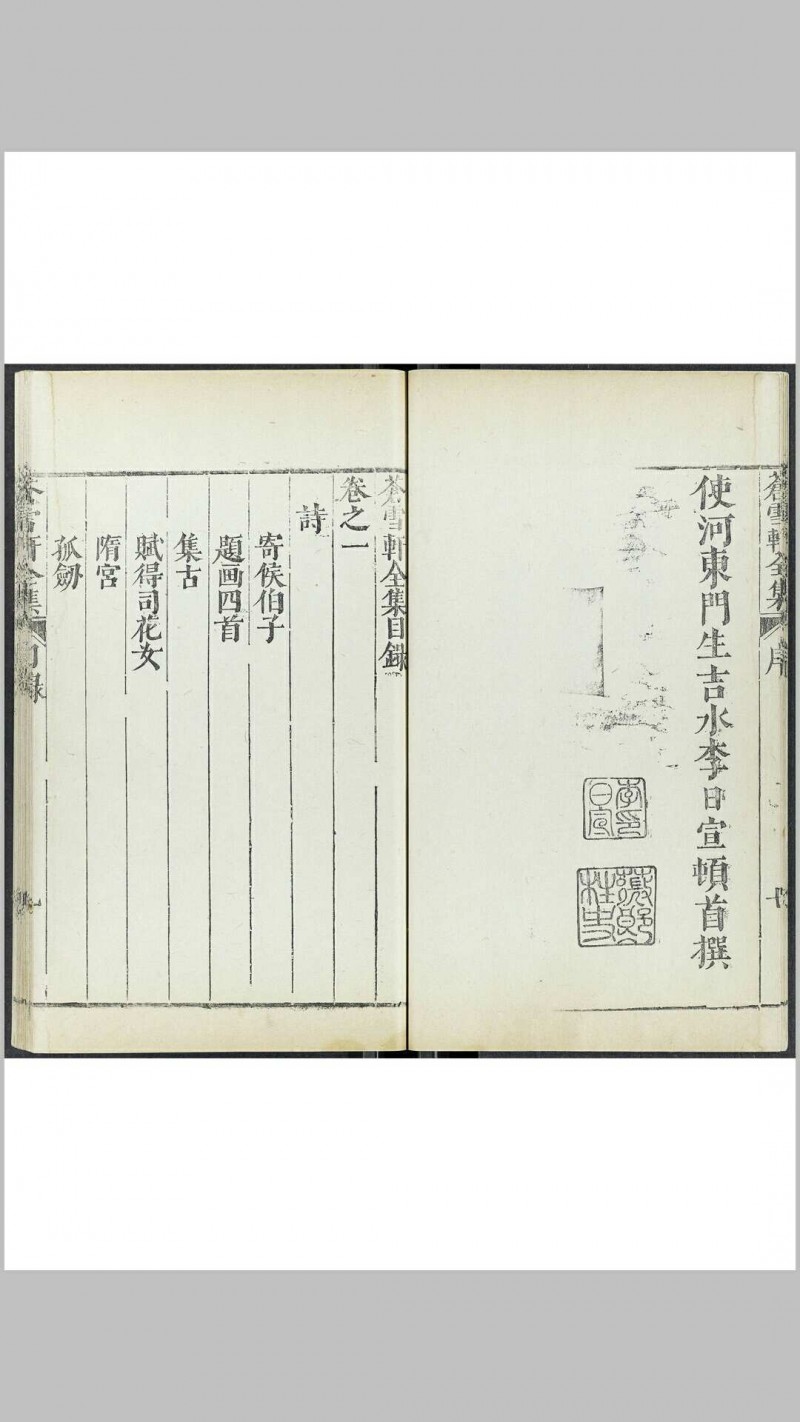 蒼雪軒全集 序
使河東門生吉水李日宣頓首撰
李日宣印
蒼雪軒全集目錄
卷之一
詩
寄侯伯子
題画四首
集古
賦得司花女
隋宮
孤劒
蒼雪軒全集 目錄